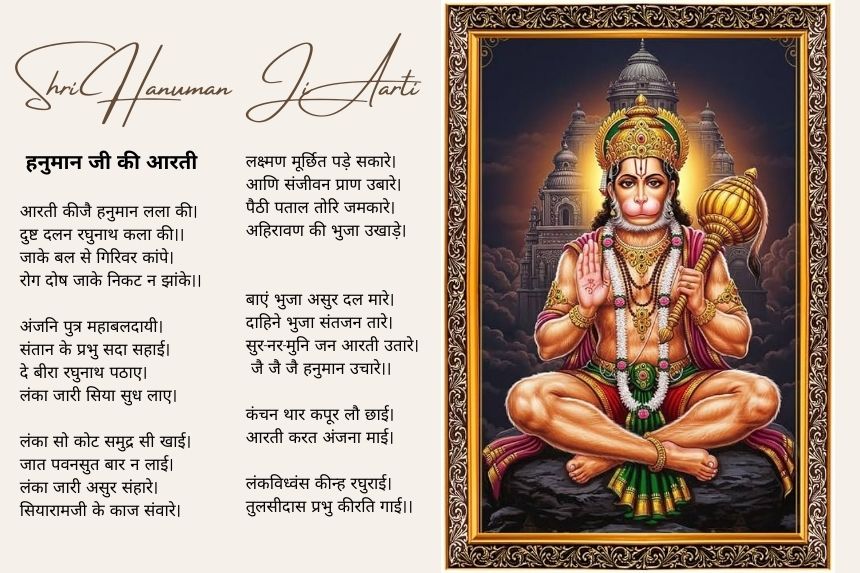 Shri Hanuman Ji Aarti
हनुमान जी की आरती
आरती कीजै हनुमान लला की।
दुष्ट दलन रघुनाथ कला की।।
जाके बल से गिरिवर कांपे।
रोग दोष जाके निकट न झांके।।
अंजनि पुत्र महाबलदायी।
संतान के प्रभु सदा सहाई।
दे बीरा रघुनाथ पठाए।
लंका जारी सिया सुध लाए।
लंका सो कोट समुद्र सी खाई।
जात पवनसुत बार न लाई।
लंका जारी असुर संहारे।
सियारामजी के काज संवारे।
लक्ष्मण मूर्छित पड़े सकारे।
आणि संजीवन प्राण उबारे।
पैठी पताल तोरि जमकारे।
अहिरावण की भुजा उखाड़े।
बाएं भुजा असुर दल मारे।
दाहिने भुजा संतजन तारे।
सुर-नर-मुनि जन आरती उतारे।
जै जै जै हनुमान उचारे।।
कंचन थार कपूर लौ छाई।
आरती करत अंजना माई।
लंकविध्वंस कीन्ह रघुराई।
तुलसीदास प्रभु कीरति गाई।।